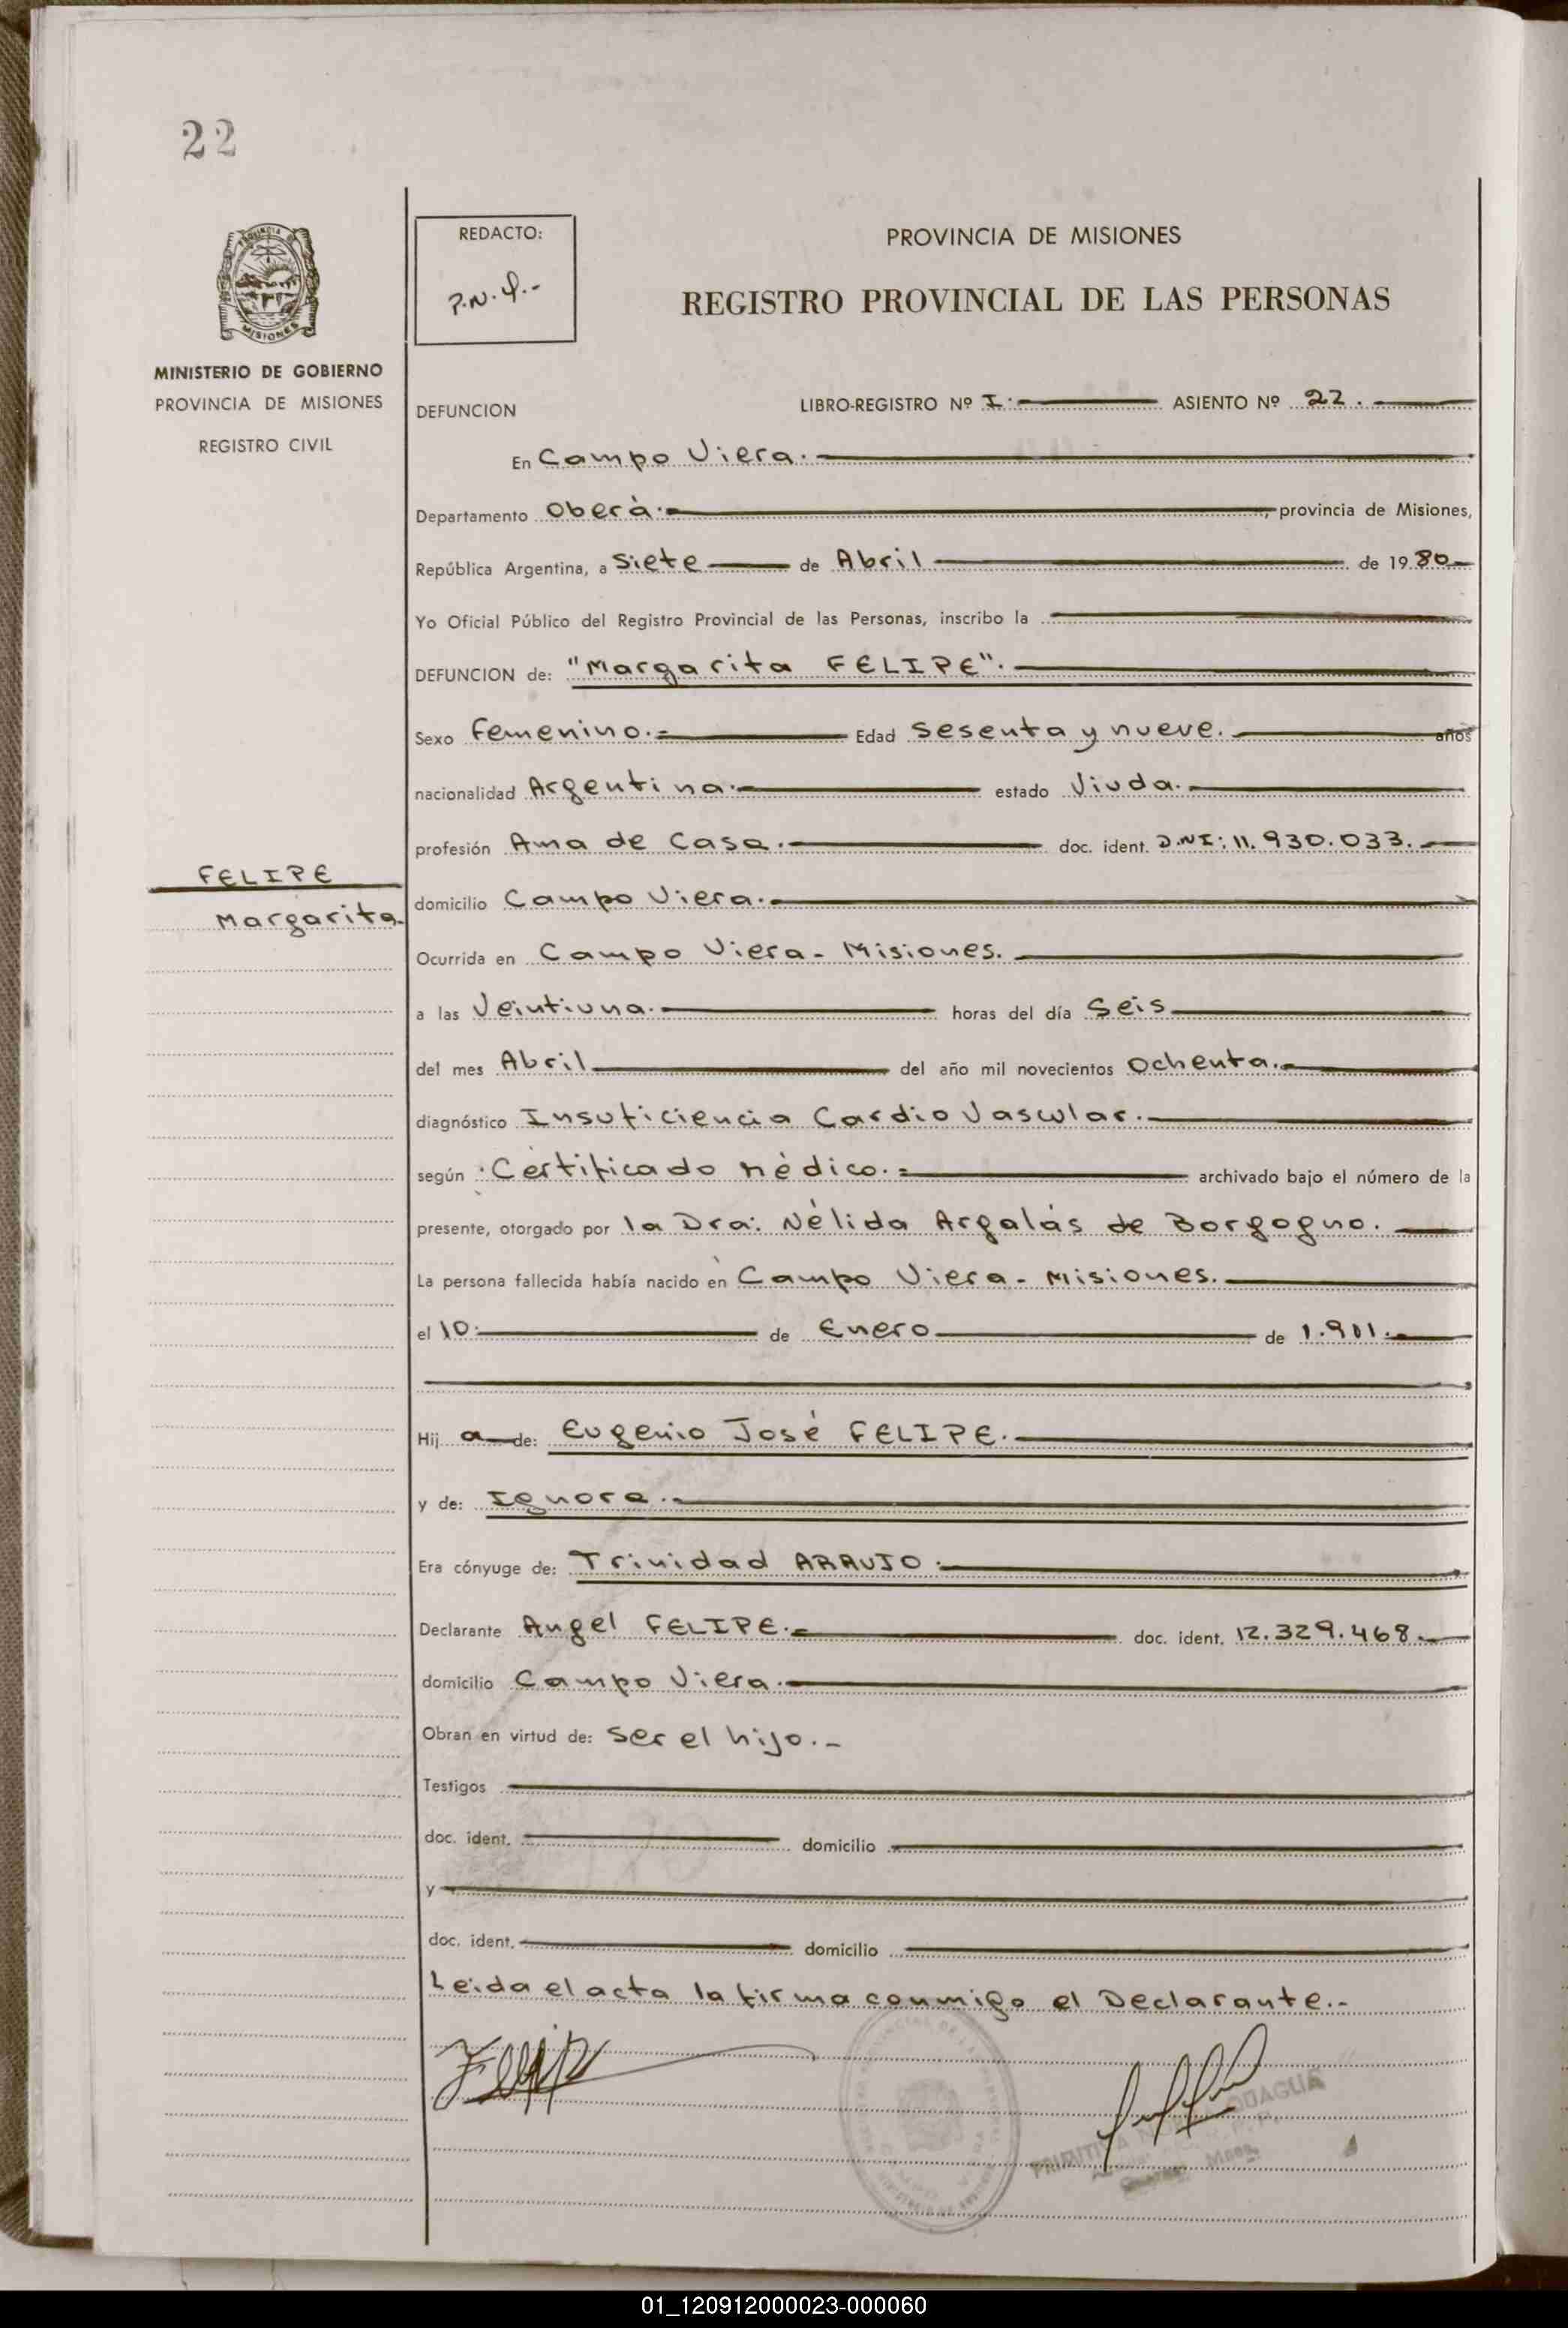 22
PROVINCIA DE MISIONES
MINISTERIO DE GOBIERNO
PROVINCIA DE MISIONES
REGISTRO CIVIL
REDACTO:
P.N.
PROVINCIA DE MISIONES
REGISTRO PROVINCIAL DE LAS PERSONAS
DEFUNCION LIBRO-REGISTRO Nº I.- ASIENTO Nº 22.
En Campo Viera.
Departamento Oberà.-, provincia de Misiones,
República Argentina, a Siete de Abril de 1980
Yo Oficial Público del Registro Provincial de las Personas, inscribo la
DEFUNCION de: "Margarita FELIPE".
Sexo Femenino.= Edad Sesenta y nueve. años
nacionalidad Argentina.- estado Viuda.-
profesión Ama de Casa.- doc. ident. D.NI: 11.930.033.
FELIPE
Margarita
domicilio Campo Viera.-
Ocurrida en Campo Viera - Misiones.
a las Veintiuna.- horas del día Seis
del mes Abril del año mil novecientos Ochenta.-
diagnóstico Insuficiencia Cardio Vascular.-
según Certificado Mèdico.= archivado bajo el número de la
presente, otorgado por la Dra: Nélida Argalás de Borgogno.
La persona fallecida había nacido en Campo Viera - Misiones.
el 10.- de Enero de 1.911.-
Hij a de: Eugenio José FELIPE.
y de: Ignora.-
Era cónyuge de: Trinidad ARAUJO.
Declarante Angel FELIPE.= doc. ident. 12.329.468.-
domicilio Campo Viera.-
Obran en virtud de: Ser el hijo.-
Testigos
doc. ident. domicilio
y
doc. ident. domicilio
Leida el acta la firma conmigo el Declarante.-
Felipe
01_120912000023-000060